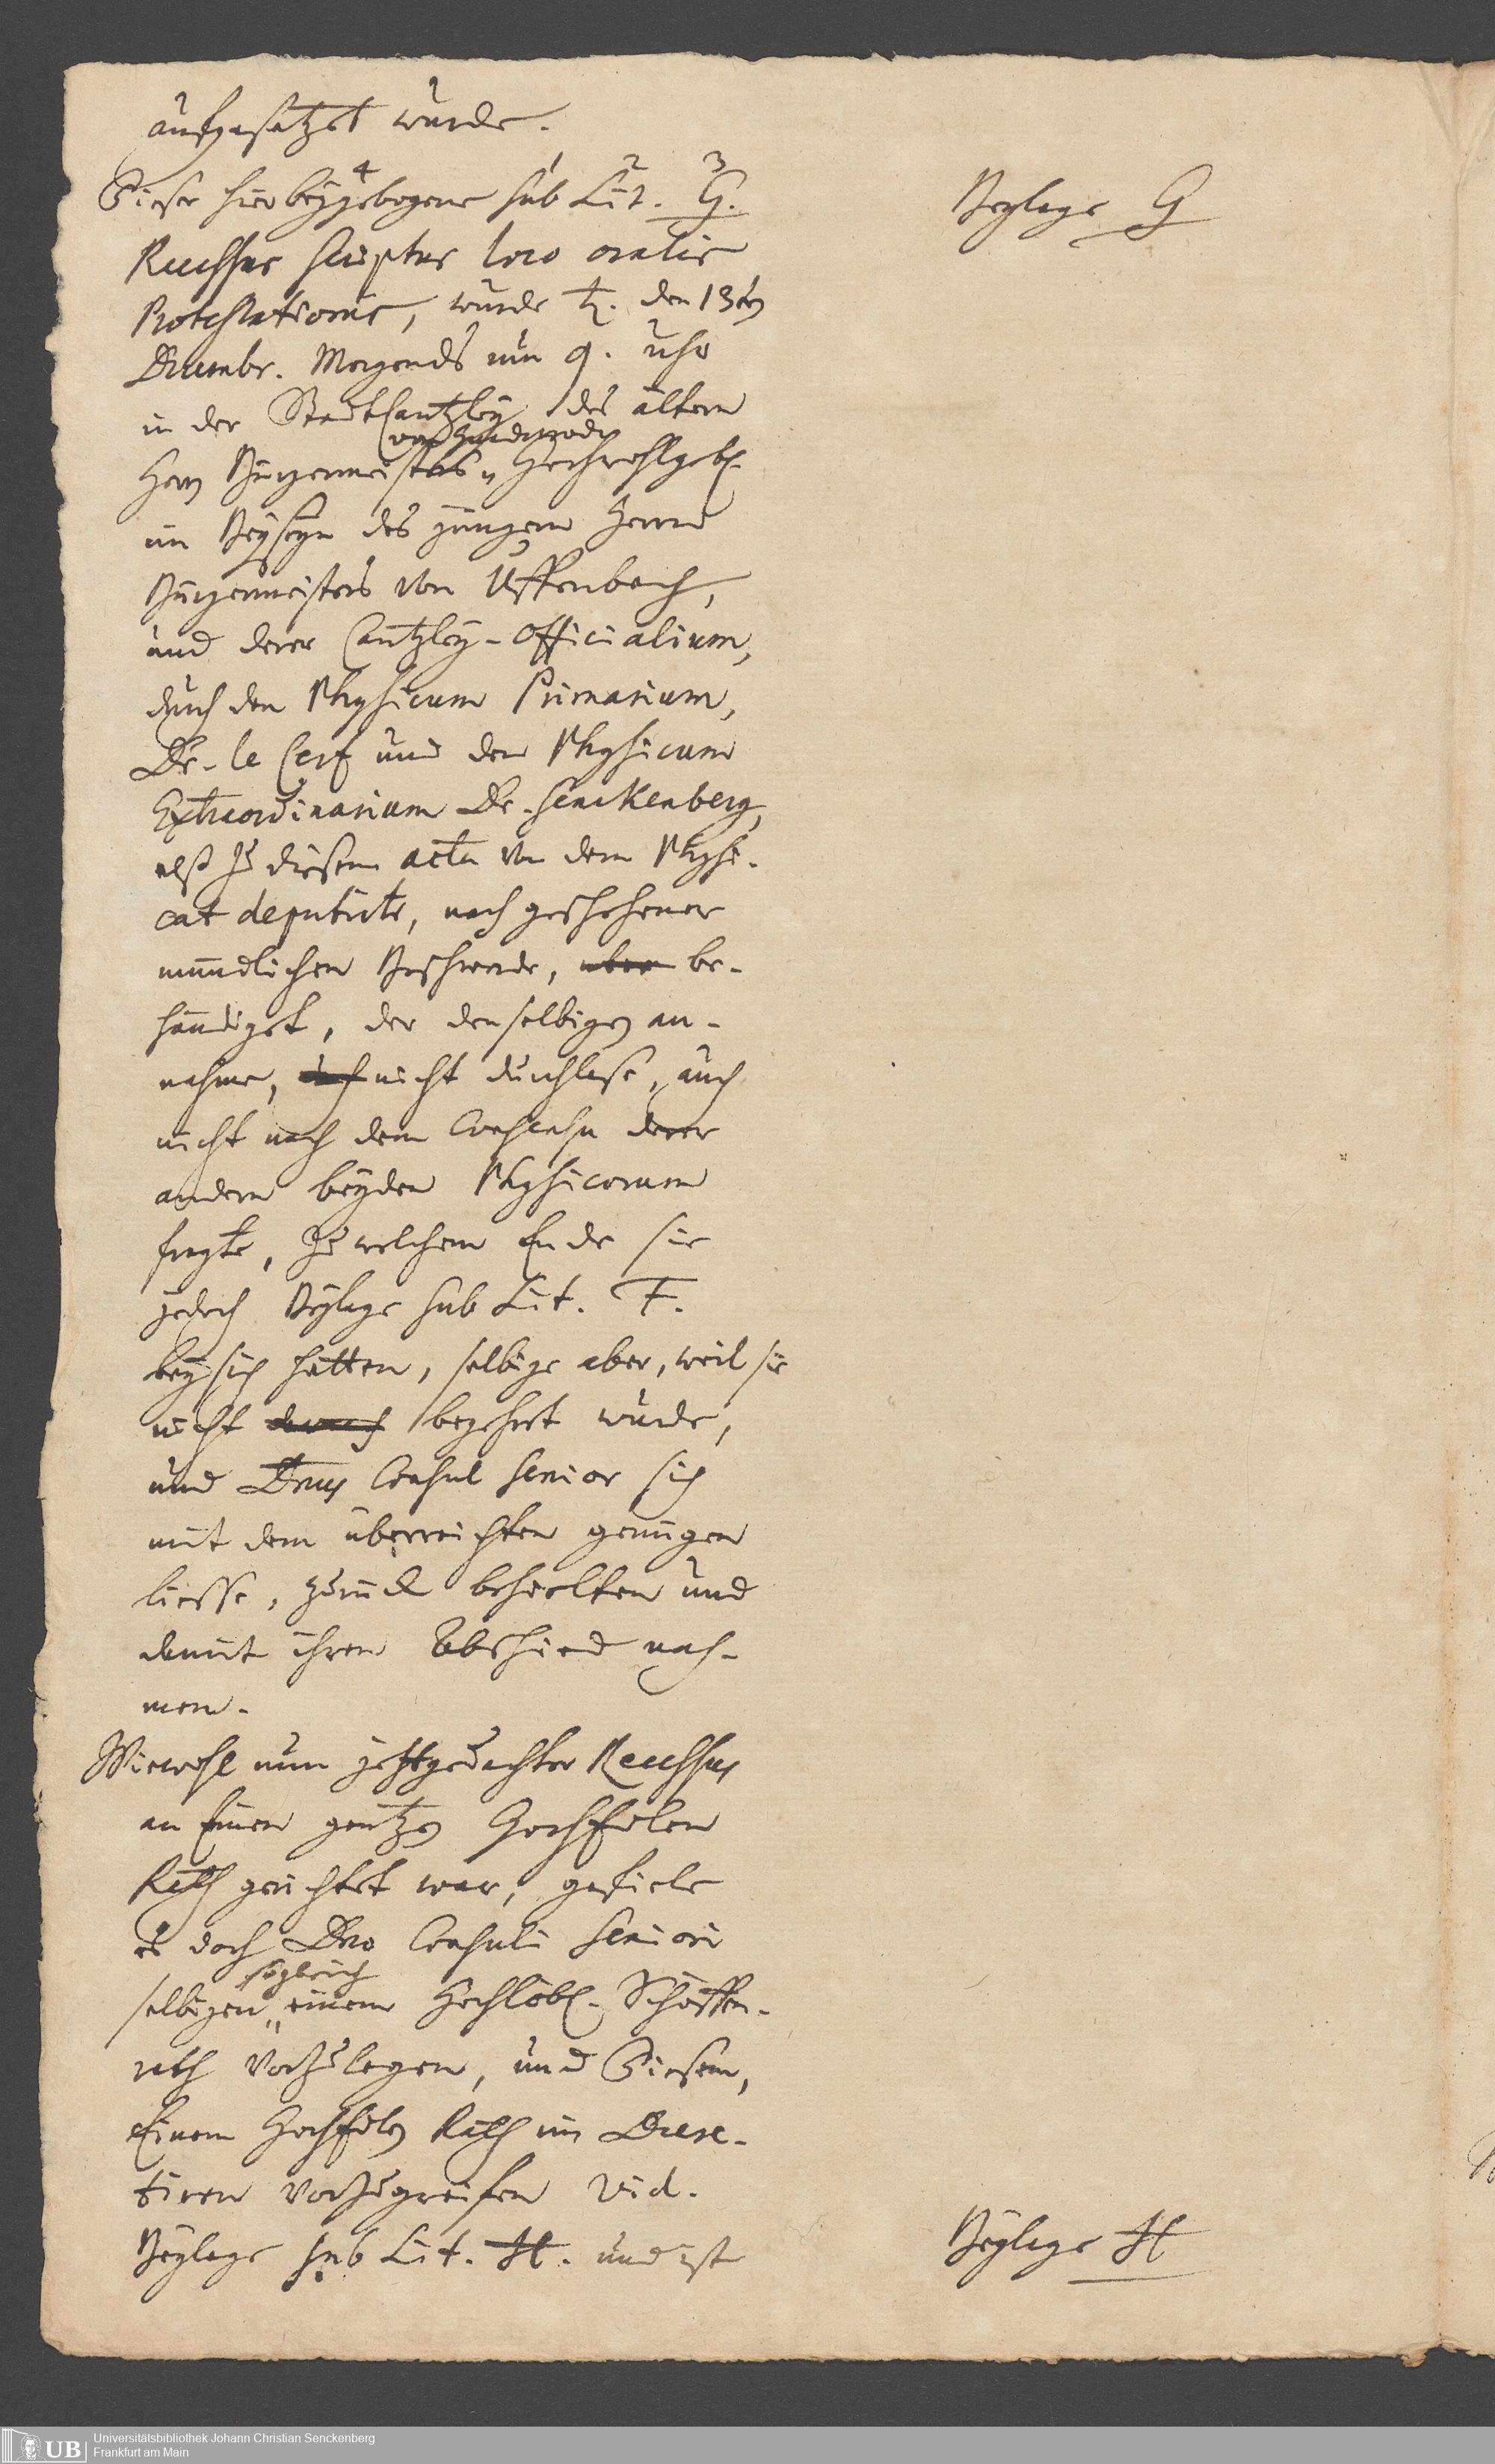 aufgesetzet wurde.
Dieser hier beygebogene 4 sub 1 Lit. 2 G. 3
Beylage G
Recessus scriptus loco oralis
Protestationis, wurde ♄. den 13ten
Decembr. Morgends um 9. Uhr
in der Stadt Cantzley des ältern
von Günderrode
Herrn Burgermeisters Hochwohlgeb.
im Beyseyn des jüngern Herrn
Burgermeisters von Uffenbach,
und derer Cantzley-Officialium,
durch den Physicum Primarium,
Dr. le Cerf und den Physicum
Extraordinarium Dr. Senckenberg,
alß zu diesem actu von dem Physi-
cat deputirte, nach geschehener
mündlichen Beschwerde, aber be-
händiget, der denselbigen an-
nahme, doch nicht durchlase, auch
nicht nach dem Consensu derer
andern beyden Physicorum
fragte, zu welchem Ende sie
jedoch Beylage sub Lit. F.
bey sich hatten, selbige aber, weil sie
nicht begehrt wurde,
und Dnus Consul Senior sich
mit dem überreichten genügen
liesse, zurück behielten und
damit ihren Abschied nah-
men.
Wiewohl nun jetztgedachter Recessus
an Einen gantzen Hochedlen
Rath gerichtet war, gefiele
es doch Dno Consuli Seniori
sogleich
selbigen einem Hochlöbl. Schöffen-
rath vorzulegen, und Diesem,
Einem Hochedlen Rath im Decre-
tiren vorzugreifen vid.
Beylage sub Lit. H. und ist
Beylage H
Universitätsbibliothek Johann Christian Senckenberg
Frankfurt am Main
UB